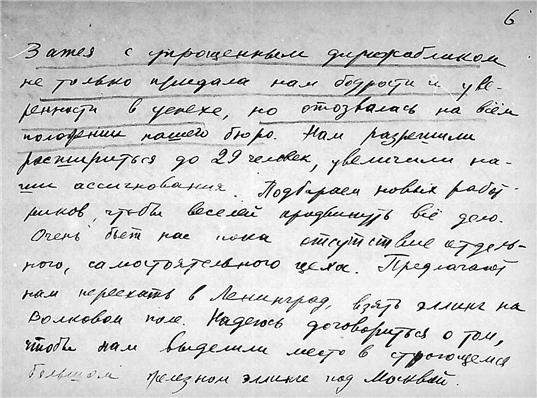 6
Затея с упрощенным дирижабликом
не только придала нам бодрости и уве-
ренности в успехе, но отозвалась на всём
положении нашего бюро. Нам разрешили
расшириться до 29 человек, увеличили на-
ши ассигнования. Подбираем новых работ-
ников, чтобы веселей продвинуть всё дело.
Очень бьет нас пока отсутствие отдель-
ного, самостоятельного цеха. Предлагают
нам переехать в Ленинград, взять эллинг на
Волковом поле. Надеюсь договориться о том,
чтобы нам выделили место в строющемся
большом железном эллинге под Москвой.